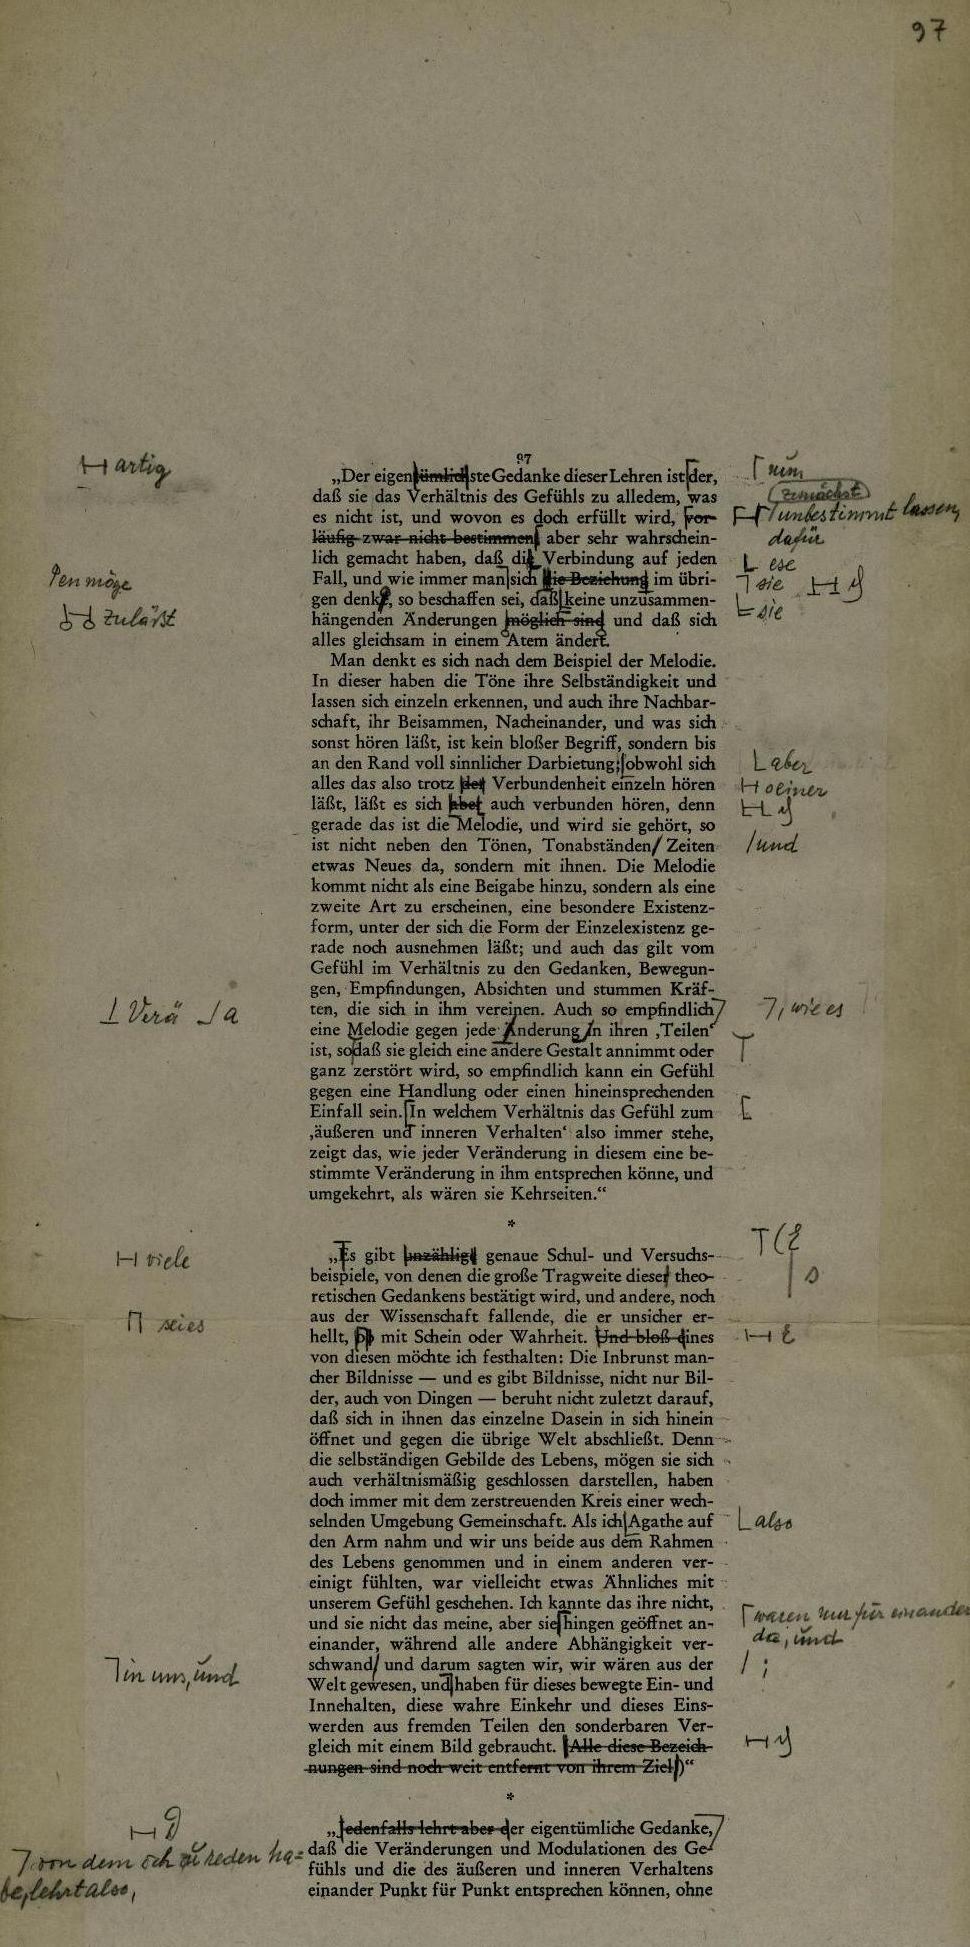 97
97
„Der eigentümlichste Gedanke dieser Lehren ist der,
daß sie das Verhältnis des Gefühls zu alledem, was
es nicht ist, und wovon es doch erfüllt wird, vor-
läufig zwar nicht bestimmen, aber sehr wahrschein-
lich gemacht haben, daß die Verbindung auf jeden
Fall, und wie immer man sich die Beziehung im übri-
gen denke, so beschaffen sei, daß keine unzusammen-
hängenden Änderungen möglich sind und daß sich
alles gleichsam in einem Atem ändert.
Man denkt es sich nach dem Beispiel der Melodie.
In dieser haben die Töne ihre Selbständigkeit und
lassen sich einzeln erkennen, und auch ihre Nachbar-
schaft, ihr Beisammen, Nacheinander, und was sich
sonst hören läßt, ist kein bloßer Begriff, sondern bis
an den Rand voll sinnlicher Darbietung; obwohl sich
alles das also trotz der Verbundenheit einzeln hören
läßt, läßt es sich aber auch verbunden hören, denn
gerade das ist die Melodie, und wird sie gehört, so
ist nicht neben den Tönen, Tonabständen, Zeiten
etwas Neues da, sondern mit ihnen. Die Melodie
kommt nicht als eine Beigabe hinzu, sondern als eine
zweite Art zu erscheinen, eine besondere Existenz-
form, unter der sich die Form der Einzelexistenz ge-
rade noch ausnehmen läßt; und auch das gilt vom
Gefühl im Verhältnis zu den Gedanken, Bewegun-
gen, Empfindungen, Absichten und stummen Kräf-
ten, die sich in ihm vereinen. Auch so empfindlich
eine Melodie gegen jede Änderung in ihren ‚Teilen‘
ist, sodaß sie gleich eine andere Gestalt annimmt oder
ganz zerstört wird, so empfindlich kann ein Gefühl
gegen eine Handlung oder einen hineinsprechenden
Einfall sein. In welchem Verhältnis das Gefühl zum
‚äußeren und inneren Verhalten‘ also immer stehe,
zeigt das, wie jeder Veränderung in diesem eine be-
stimmte Veränderung in ihm entsprechen könne, und
umgekehrt, als wären sie Kehrseiten.“
*
„Es gibt unzählige genaue Schul- und Versuchs-
beispiele, von denen die große Tragweite dieser theo-
retischen Gedankens bestätigt wird, und andere, noch
aus der Wissenschaft fallende, die er unsicher er-
hellt, ob mit Schein oder Wahrheit. Und bloß eines
von diesen möchte ich festhalten: Die Inbrunst man-
cher Bildnisse — und es gibt Bildnisse, nicht nur Bil-
der, auch von Dingen — beruht nicht zuletzt darauf,
daß sich in ihnen das einzelne Dasein in sich hinein
öffnet und gegen die übrige Welt abschließt. Denn
die selbständigen Gebilde des Lebens, mögen sie sich
auch verhältnismäßig geschlossen darstellen, haben
doch immer mit dem zerstreuenden Kreis einer wech-
selnden Umgebung Gemeinschaft. Als ich Agathe auf
den Arm nahm und wir uns beide aus dem Rahmen
des Lebens genommen und in einem anderen ver-
einigt fühlten, war vielleicht etwas Ähnliches mit
unserem Gefühl geschehen. Ich kannte das ihre nicht,
und sie nicht das meine, aber sie hingen geöffnet an-
einander, während alle andere Abhängigkeit ver-
schwand, und darum sagten wir, wir wären aus der
Welt gewesen, und haben für dieses bewegte Ein- und
Innehalten, diese wahre Einkehr und dieses Eins-
werden aus fremden Teilen den sonderbaren Ver-
gleich mit einem Bild gebraucht. (Alle diese Bezeich-
nungen sind noch weit entfernt von ihrem Ziel.)“
*
„Jedenfalls lehrt aber der eigentümliche Gedanke,
daß die Veränderungen und Modulationen des Ge-
fühls und die des äußeren und inneren Verhaltens
einander Punkt für Punkt entsprechen können, ohne
artig
möge
zuläßt
Verä a
viele
seies
in uns, und
D
von dem ich zu reden ha=
be, lehrt also,
nun
zunächst
unbestimmt lassen,
dafür
ese
sie
sie
aber
einer
und
, wie es
E
s
E
also
waren nur für einander
da, und
;